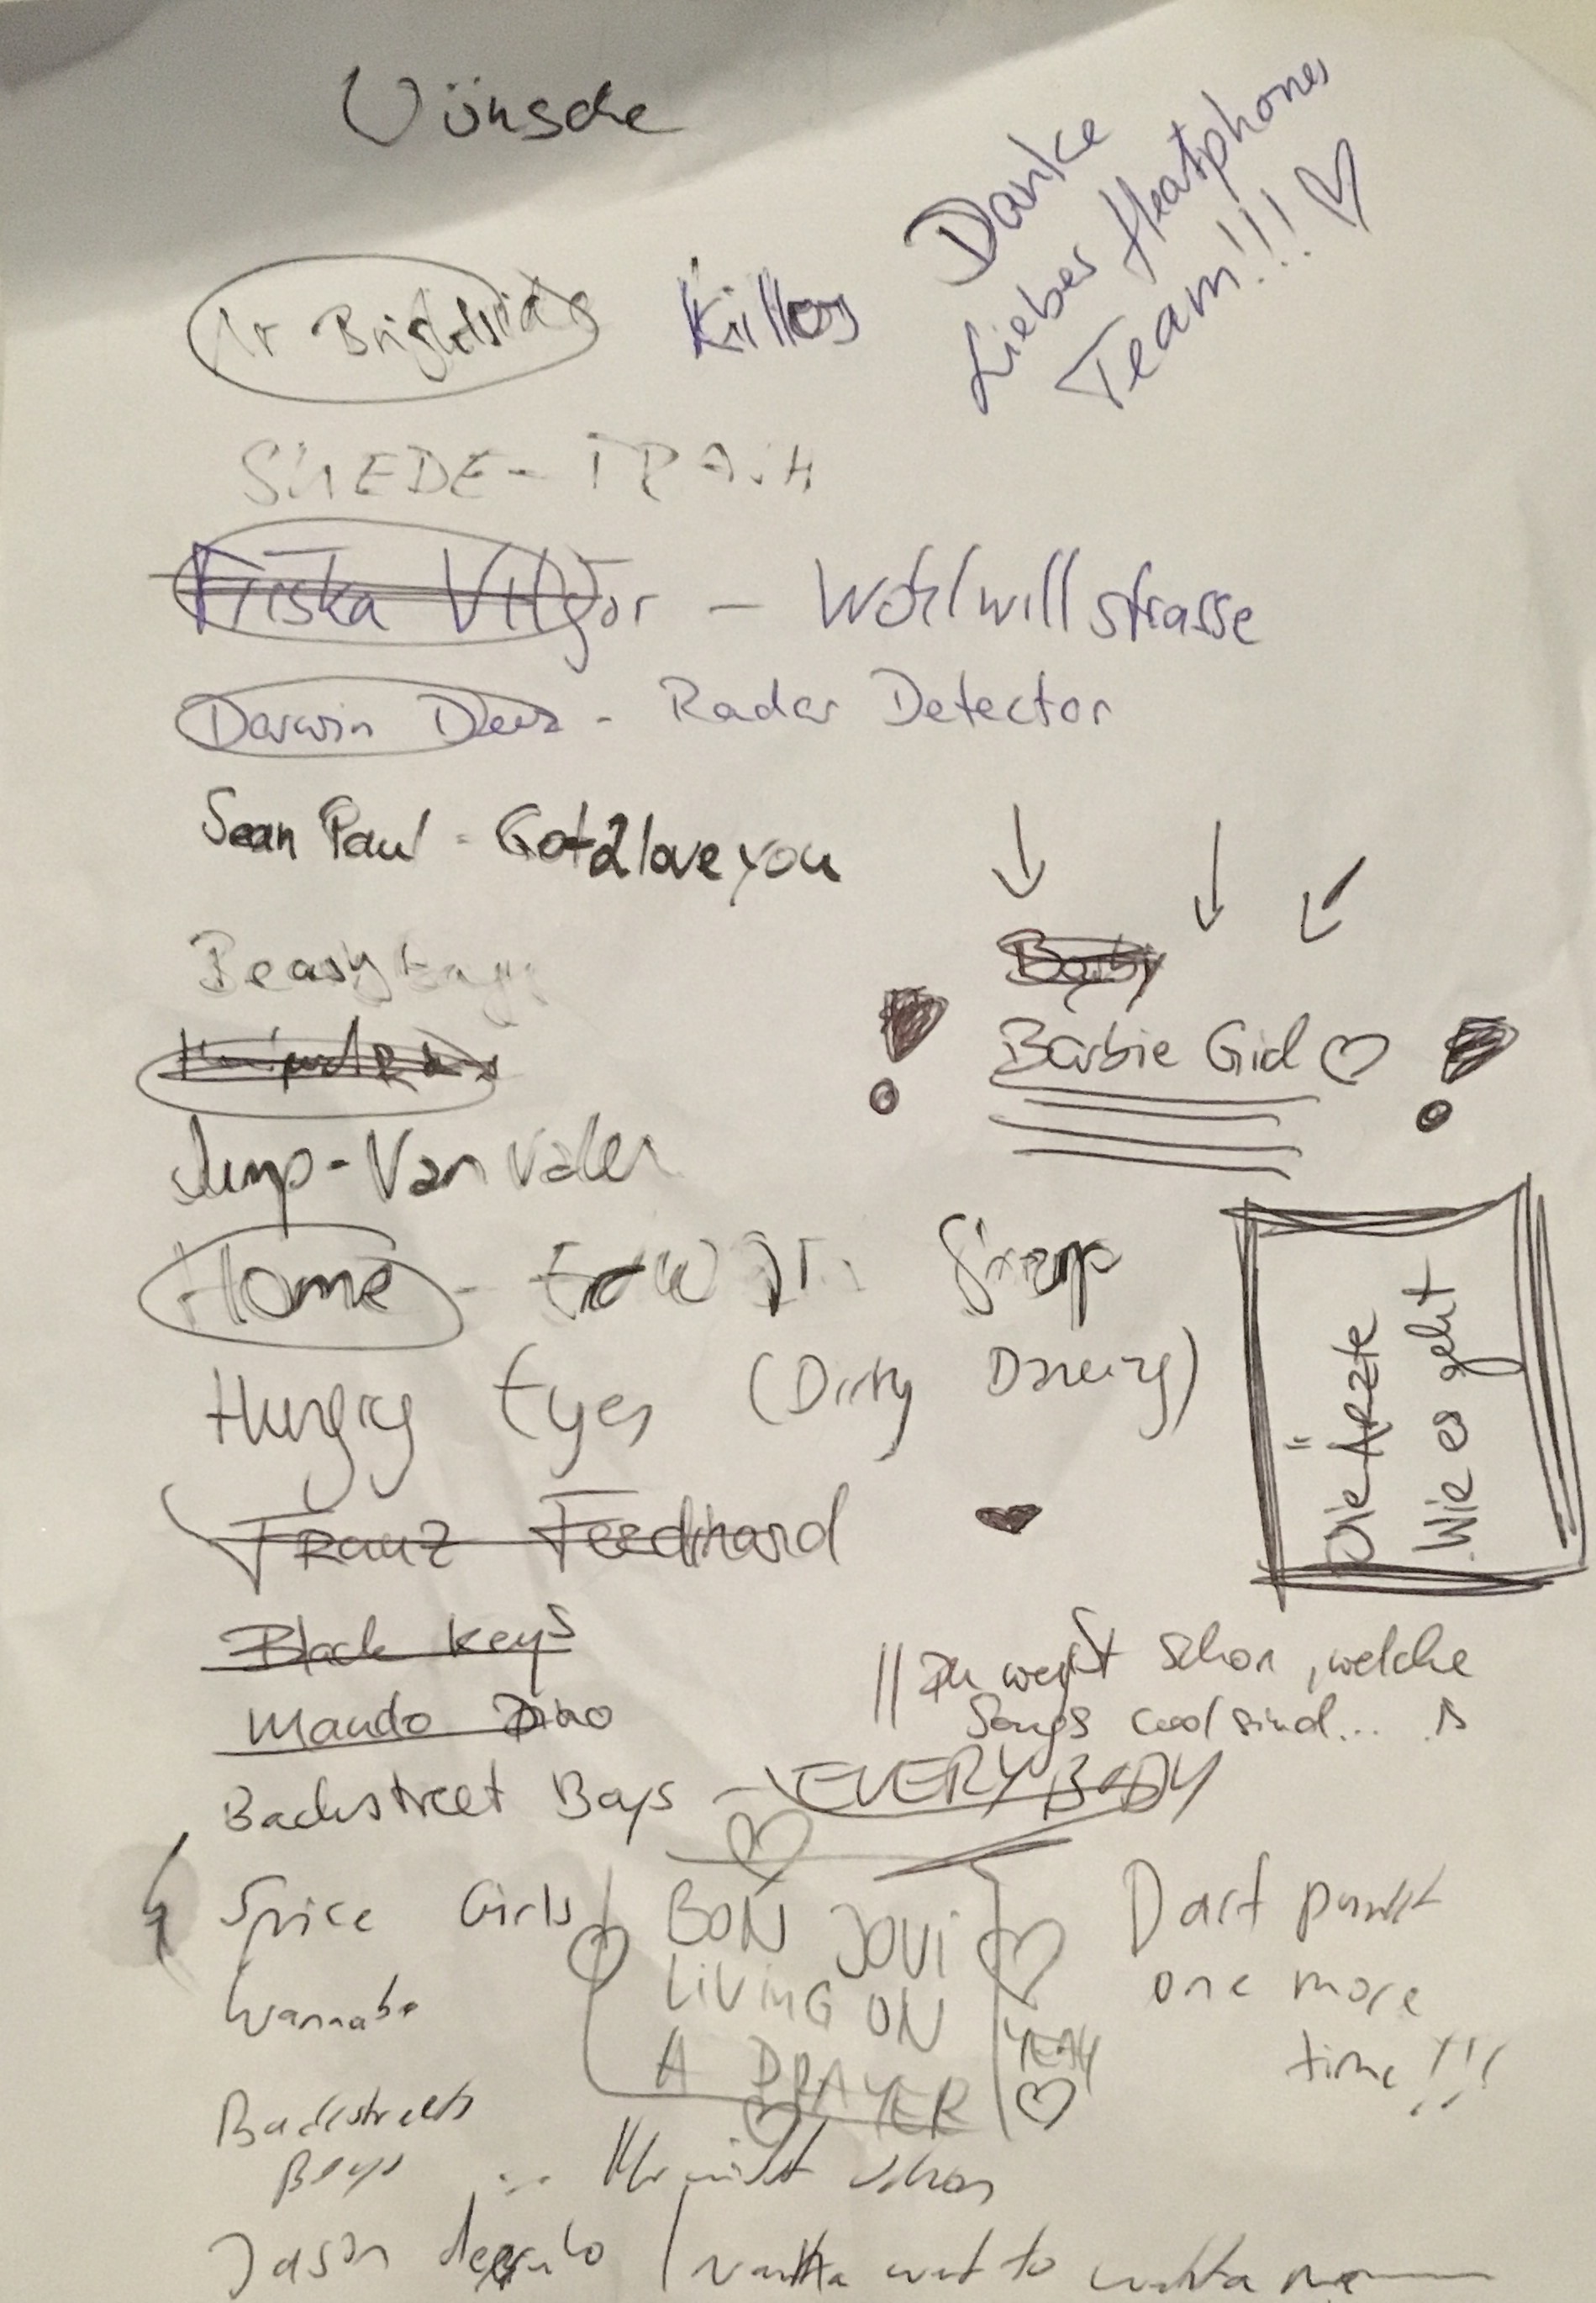 Wünsche
Danke
Liebes Heatphones
Team!!! ♡
Mr Brightside Killers
SUEDE - TRASH
Friska Viljor - Wohlwillstrasse
Darwin Deez - Radar Detector
Sean Paul - Got2loveyou
Beasty Boys
Barby
Barbie Girl ♡
Jump - Van Valen
Home - Edward Sharp
Hungry Eyes (Dirty Dancing)
Die Ärzte
Wie es geht
Franz Ferdinand
Black Keys
Mando Diao
Du weißt schon, welche
Songs cool sind...
Backstreet Boys - EVERYBODY
Spice Girls
Wannabe
BON JOVI
LIVING ON
A PRAYER
YEAH
Daft punk
one more
time!!!
Backstreets
Boys ... Ihr wißt schon
Jason / want to